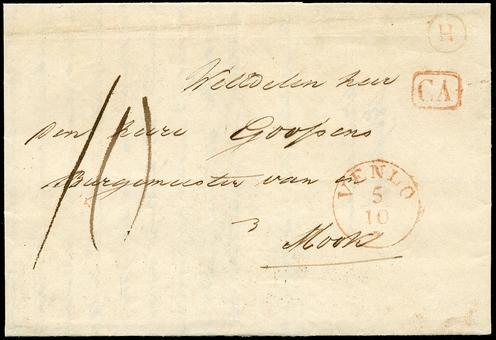 H
CA
WelEdelen heer
den heere Goossens
Burgemeester van en
Mook
10
VENLO
5
10